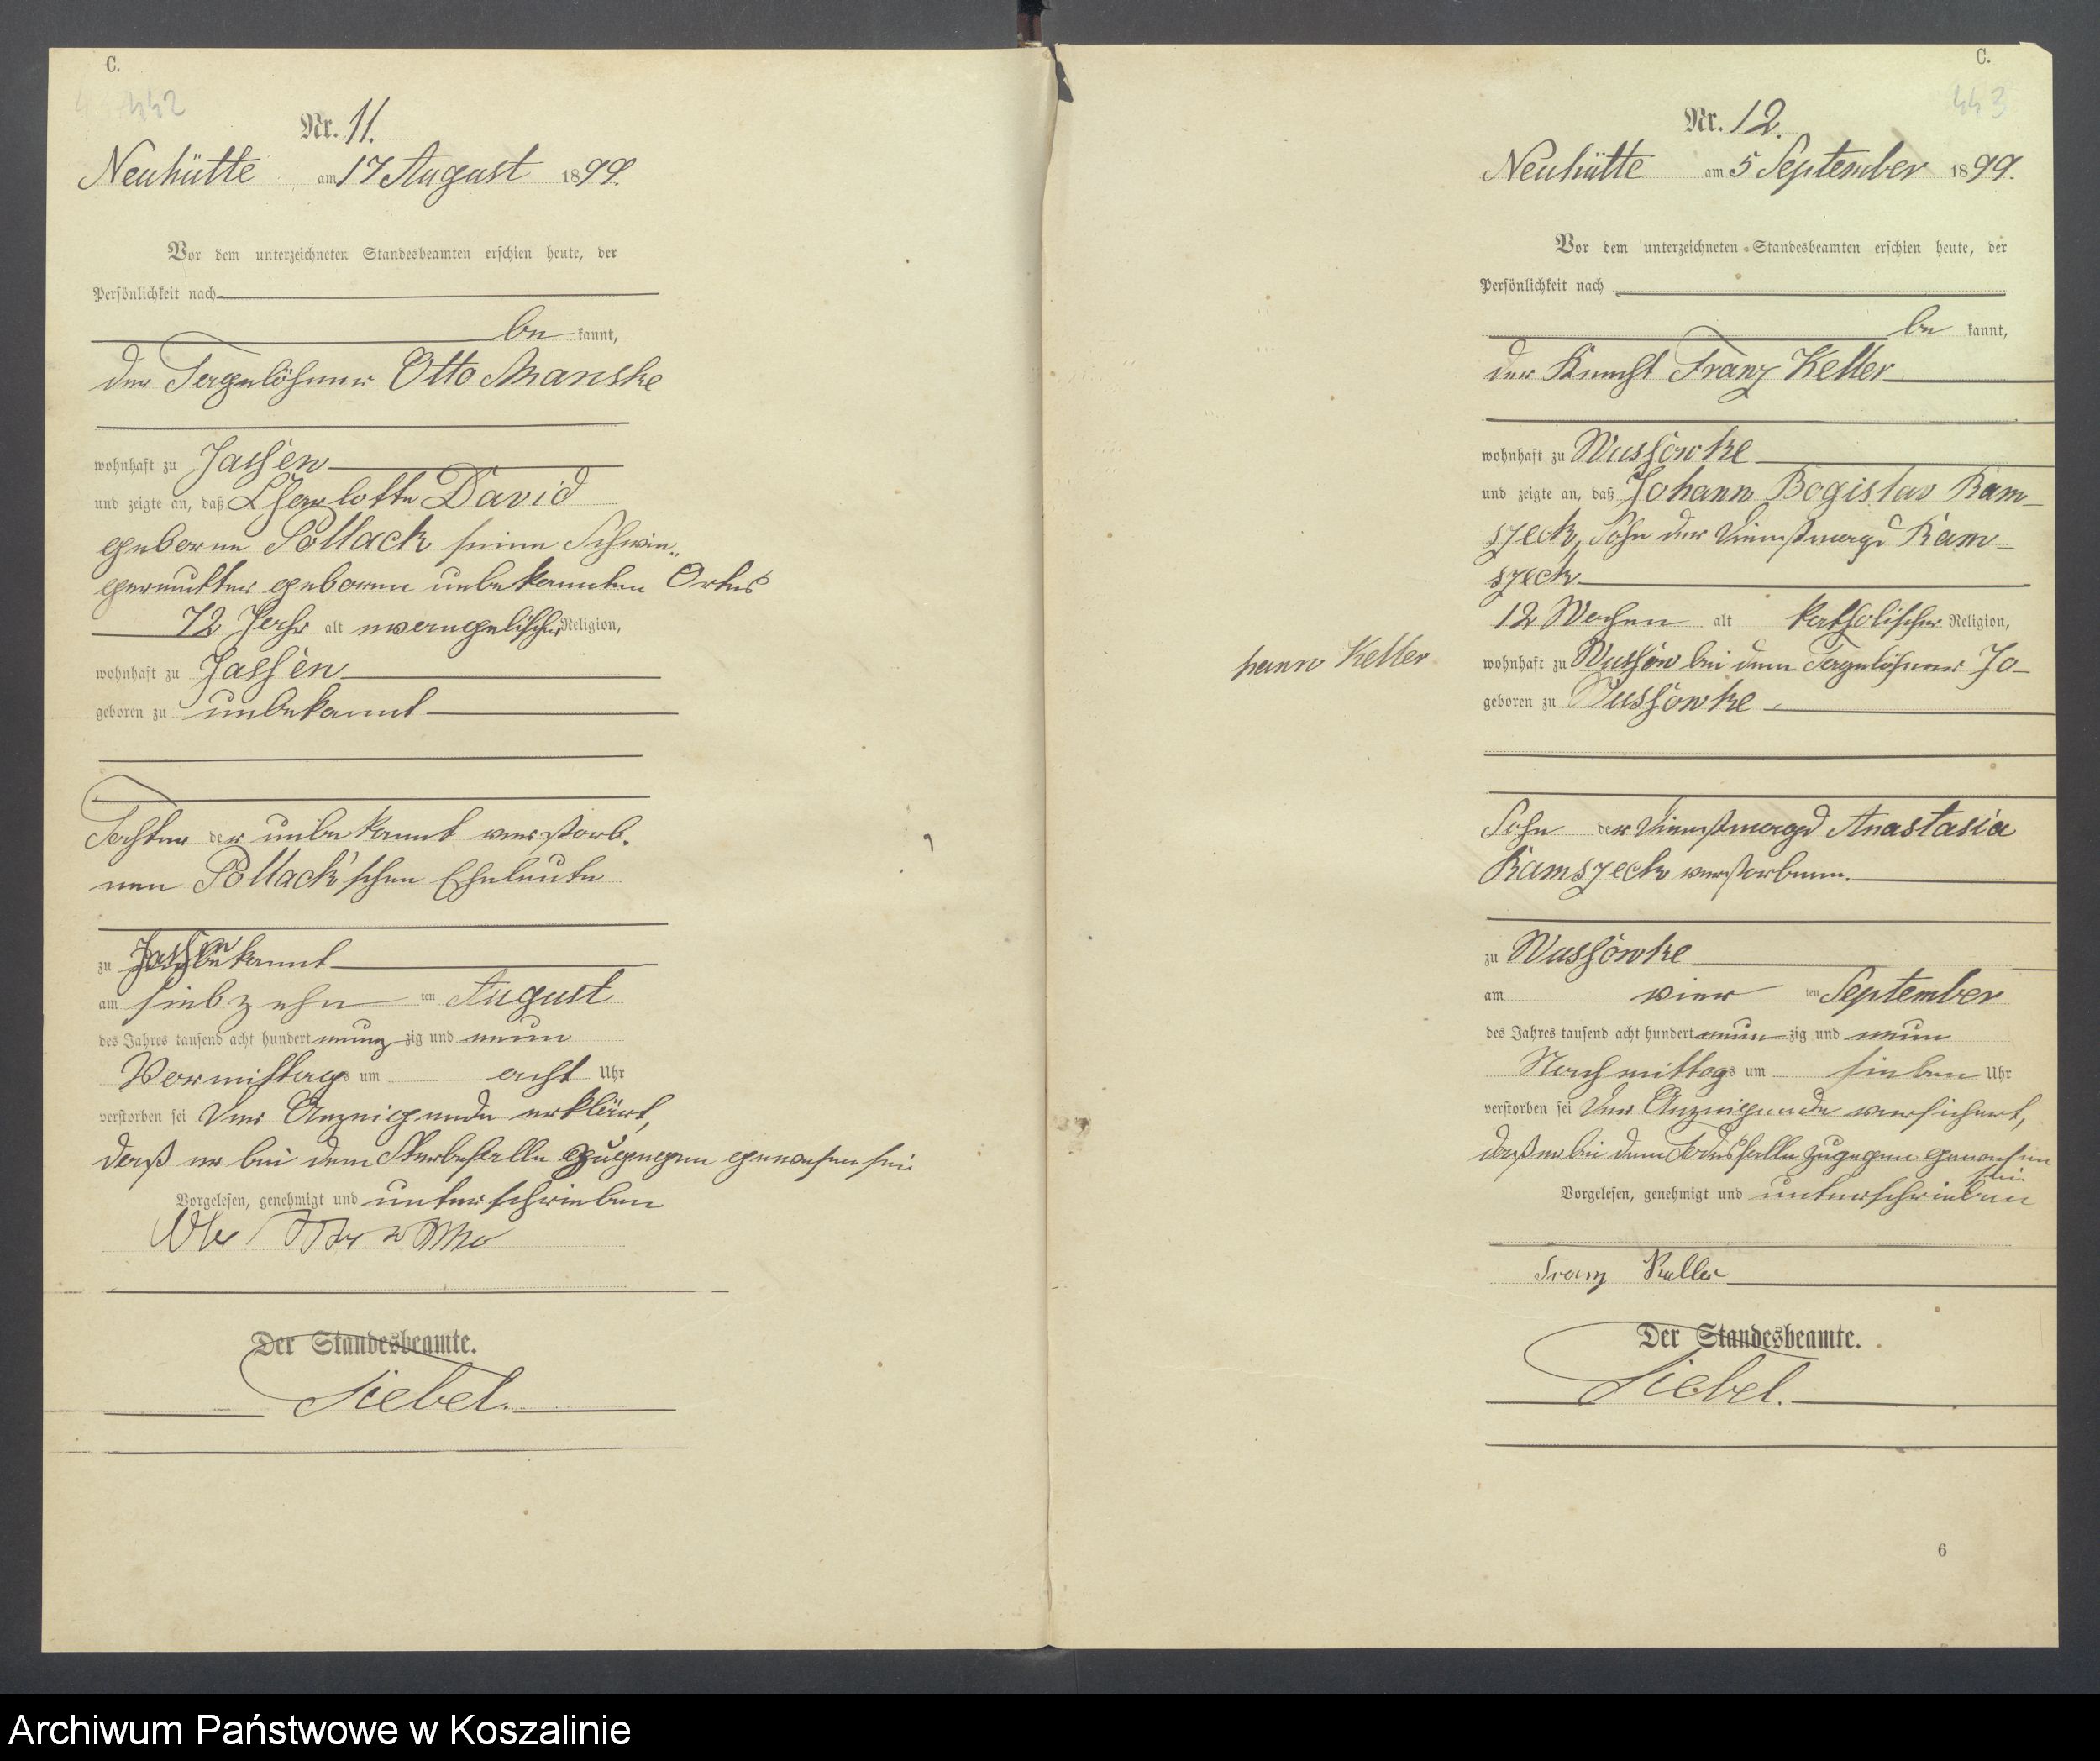 C.
442
Nr. 11.
Neuhütte am 17 August 1899.
Vor dem unterzeichneten Standesbeamten erschien heute, der
Persönlichkeit nach
be kannt,
der Tagelöhner Otto Manske
wohnhaft zu Jassen
und zeigte an, daß Charlotte David
geborne Pollack seine Schwie„
germutter geboren unbekannten Ortes
72 Jahr alt evangelischer Religion,
wohnhaft zu Jassen
geboren zu unbekannt
Tochter der unbekannt verstorb.
nen Pollack'schen Eheleute
zu Jassen
am siebzehn ten August
des Jahres tausend acht hundert neunzig und neun
Vormittags um acht Uhr
verstorben sei Der Anzeigende erklärt,
daß er bei dem Sterbefalle zugegen gewesen sei.
Vorgelesen, genehmigt und unterschrieben
Der Standesbeamte.
Siebel.
C.
443
Nr. 12.
Neuhütte am 5 September 1899.
Vor dem unterzeichneten Standesbeamten erschien heute, der
Persönlichkeit nach
be kannt,
der Knecht Franz Keller
wohnhaft zu Wussowke
und zeigte an, daß Johann Bogislav Ram-
szeck, Sohn der Dienstmagd Ram-
szeck
12 Wochen alt katholischer Religion,
wohnhaft zu Wussow bei dem Tagelöhner Jo-
hann Keller
geboren zu Wussowke
Sohn der Dienstmagd Anastasia
Ramszeck verstorbenen.
zu Wussowke
am vier ten September
des Jahres tausend acht hundert neun zig und neun
Nachmittags um sieben Uhr
verstorben sei Der Anzeigende versichert,
daß er bei dem Todesfalle zugegen gewesen
sei.
Vorgelesen, genehmigt und unterschrieben
Franz Keller
Der Standesbeamte.
Siebel.
6
Archiwum Państwowe w Koszalinie